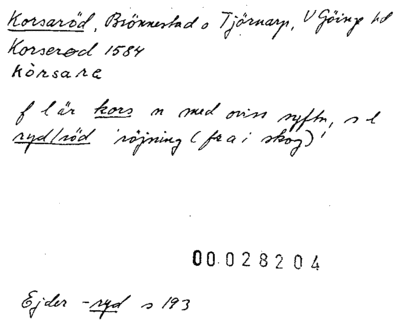 Korsaröd, Brönnestad o Tjörnarp, V Göinge hd
Korseröd 1584
kòrsara
f l är kors n med oviss syftn, s l
ryd/röd 'röjning (fr a i skog)'
00.028204
Ejder -ryd s 193